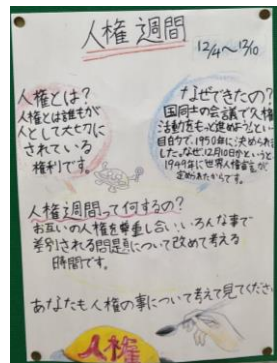 人権週間
12/4~12/10
人権とは?
人権とは誰もが
人として大切に
されている
権利です。
なぜできたの?
国同士の会議で人権
活動をもっと進めようとい
目的で、1950年に決められま
した。なぜ、12月10日かというと
1949年に世界人権宣言が
定められたからです。
人権週間って何するの?
お互いの人権を尊重し合い、いろんな事で
差別される問題について改めて考える
時間です。
あなたも人権の事について考えて見てくださ
人権